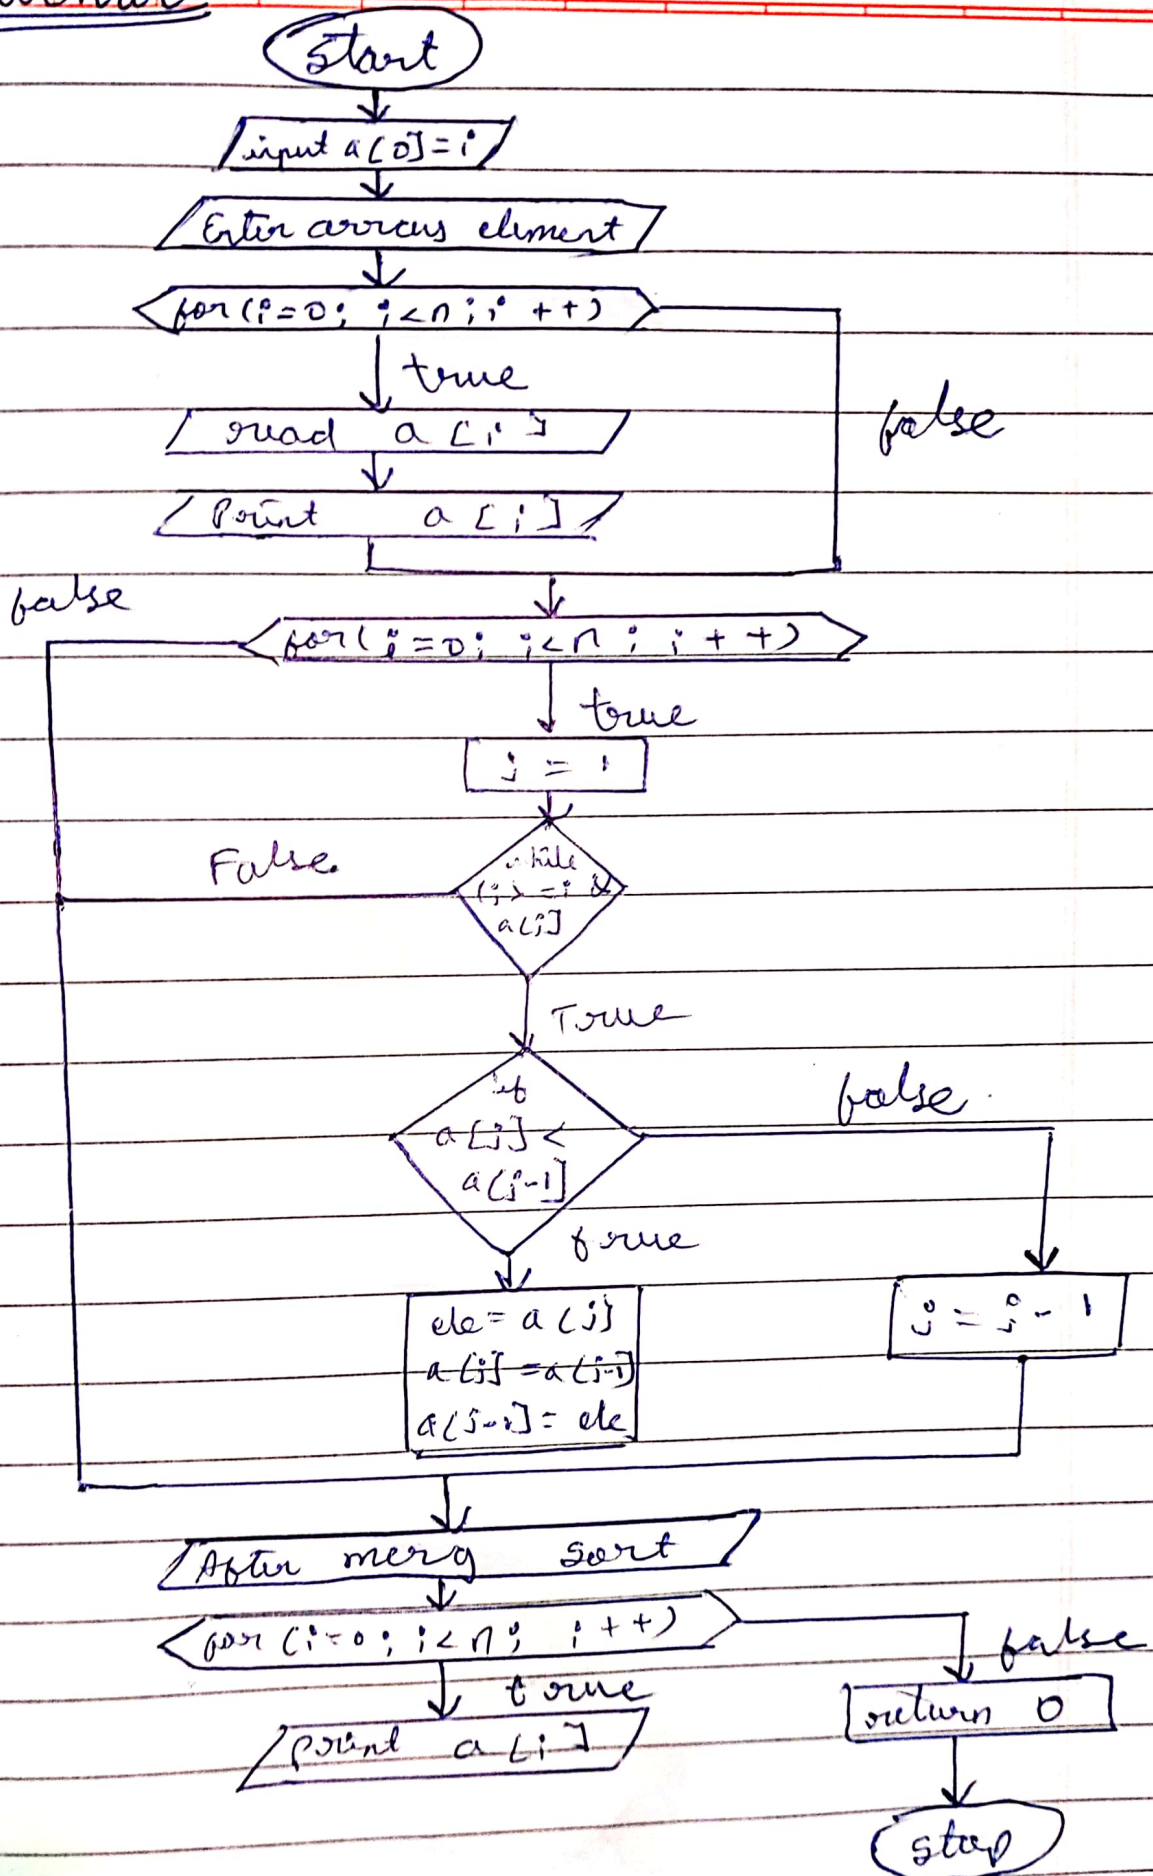 Start
input a[0]=i
Enter arraus element
for(i=0; i<n; i++)
true
false
read a[i]
Print a[i]
false
for(i=0; i<n; i++)
true
j = 1
False
while
(j>=i &
a[j]
True
if
a[j]<
a[j-1]
false
true
ele=a[j]
a[j]=a[j-1]
a[j-1]=ele
j=j-1
After merg Sort
for(i=0; i<n; i++)
false
true
return 0
print a[i]
stop